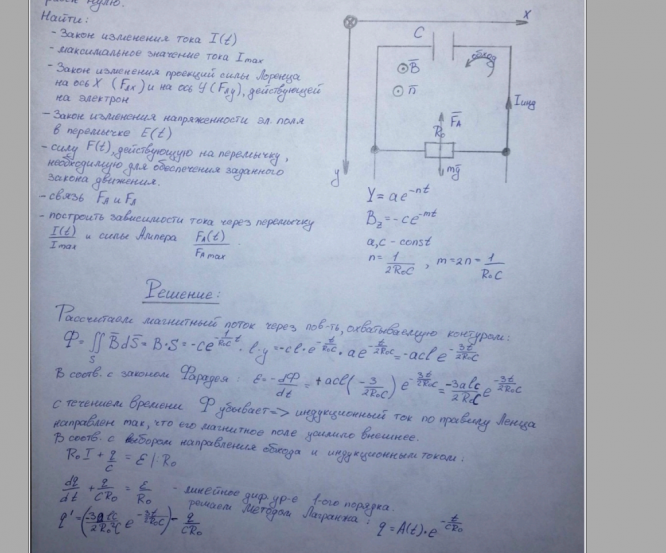 Найти:
- Закон изменения тока I(t)
- максимальное значение тока Imax
- Закон изменения проекций силы Лоренца
на ось X (FлX) и на ось Y (Fлy), действующей
на электрон
- Закон изменения напряженности эл. поля
в перемычке E(t)
- силу F(t), действующую на перемычку,
необходимую для обеспечения заданного
закона движения.
- связь Fл и FA
- построить зависимости тока через перемычку
I(t)/Imax и силы Ампера FA(t)/FAmax
X
C
B̄
n̄
обход
Iинд
F̄A
R₀
mḡ
y
Y = ae^(-nt)
B_z = -ce^(-mt)
a, c - const
n = 1/(2R₀C), m = 2n = 1/(R₀C)
Решение:
Рассчитаем магнитный поток через пов-ть, охватываемую контуром:
Ф = ∬_S B̄dS̄ = B·S = -ce^(-1/(R₀C) t)·l·y = -cl·e^(-t/(R₀C))·ae^(-t/(2R₀C)) = -acl e^(-3t/(2R₀C))
В соотв. с законом Фарадея: ε = -dФ/dt = +acl(-3/(2R₀C)) e^(-3t/(2R₀C)) = -3alc/(2R₀C) e^(-3t/(2R₀C))
С течением времени Ф убывает => индукционный ток по правилу Ленца
направлен так, что его магнитное поле усилило внешнее.
В соотв. с выбором направления обхода и индукционным током:
R₀I + q/c = ε |: R₀
dq/dt + q/(CR₀) = ε/R₀ - линейное диф. ур-е 1-ого порядка.
решаем Методом Лагранжа: q = A(t)·e^(-t/(CR₀))
q' = (-3alc/(2R₀²C) e^(-3t/(2R₀C))) - q/(CR₀)